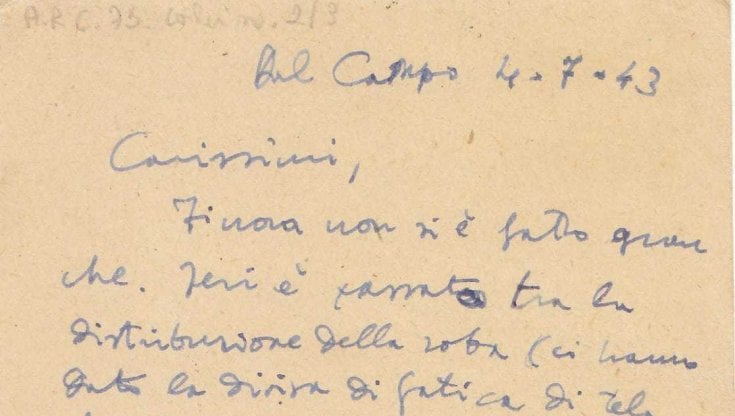 A.P.C. 75 2/3
Dal Campo 4.7.43
Carissimi,
Finora non si è fatto gran
che. Ieri è passato tra la
distribuzione della roba (ci hanno
dato la divisa di fatica di tela